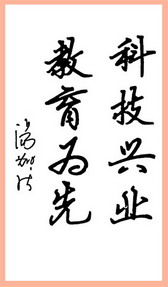 科技兴业
教育为先